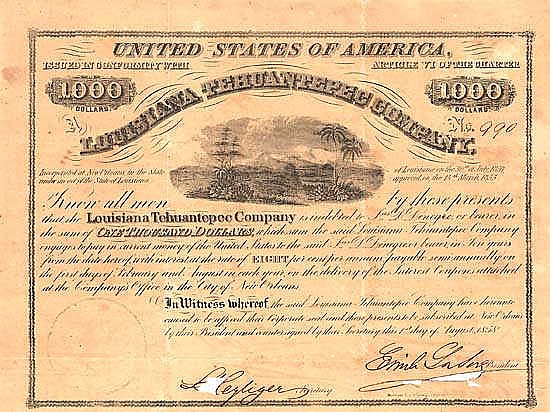 UNITED STATES OF AMERICA,
ISSUED IN CONFORMITY WITH ARTICLE VI OF THE CHARTER
1,000 DOLLARS. 1,000 DOLLARS.
LOUISIANA TEHUANTEPEC COMPANY.
A No. 990
Incorporated at New Orleans, in the State of Louisiana, on the 30th of July, 1857,
under an act of the State of Louisiana, approved, on the 15th March, 1855.
Know all men by these presents
that the Louisiana Tehuantepec Company is indebted to Jas. D. Denegre or bearer, in
the sum of ONE THOUSAND DOLLARS, which sum the said Louisiana Tehuantepec Company
engages to pay in current money of the United States to the said Jas. D. Denegre or bearer, in Ten years
from the date hereof, with interest at the rate of EIGHT per cent per annum, payable semi annually on
the first days of February and August in each year, on the delivery of the Interest Coupons attached
at the Company's Office in the City of New Orleans.
In Witness whereof, the said Louisiana Tehuantepec Company have hereunto
caused to be affixed their Corporate seal and these presents to be subscribed at New Orleans
by their President and countersigned by their Secretary this 1st day of August, 1858
President
Secretary